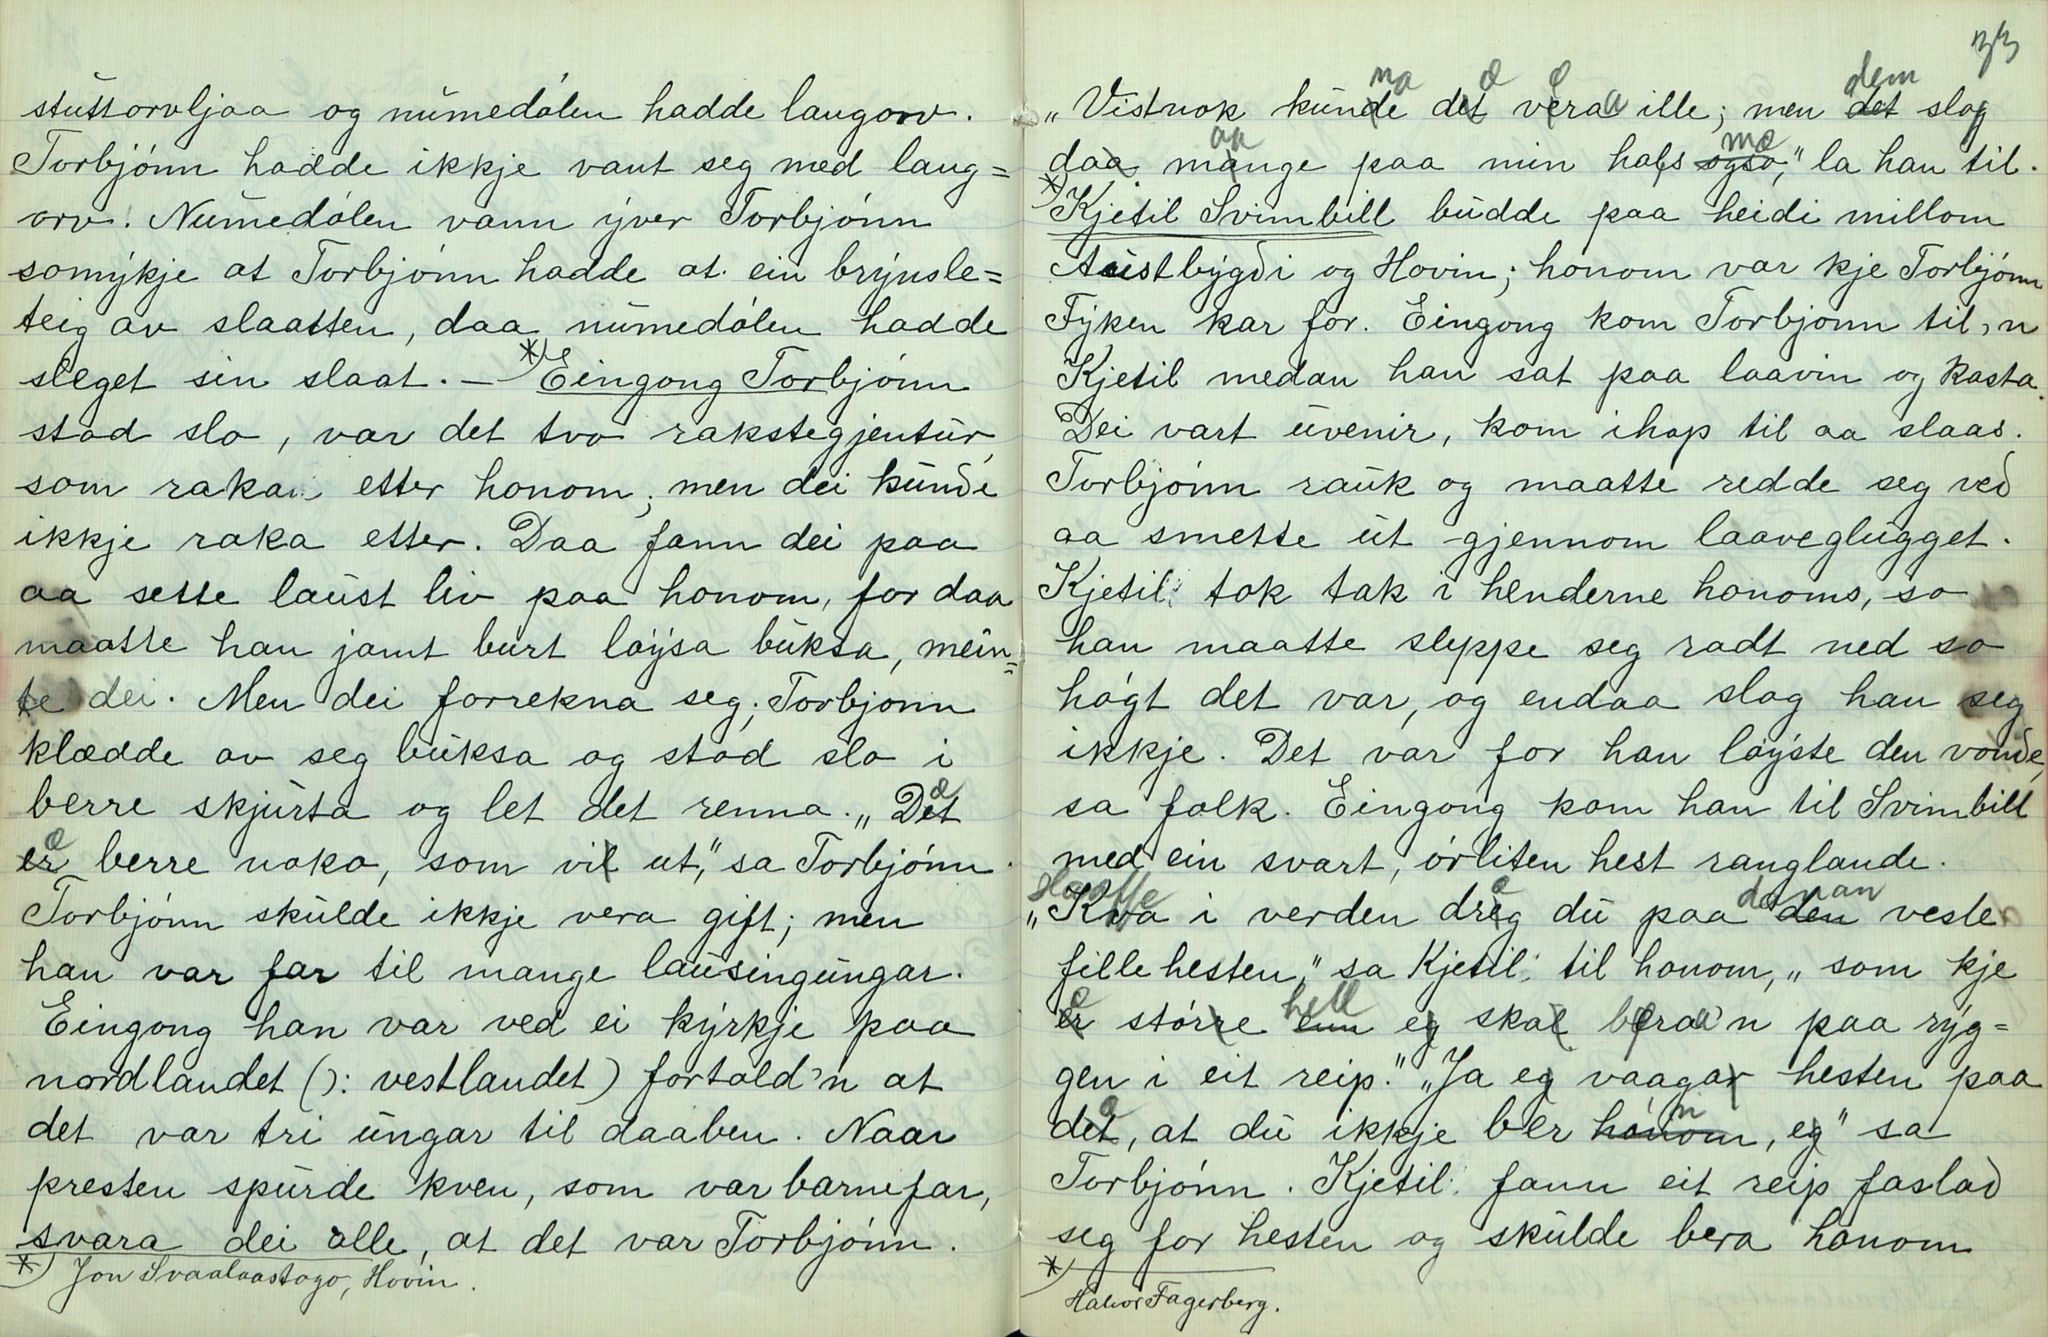 stuttorvljaa og numedólen hadde langorv.
Torbjónn hadde ikkje vant seg med lang=
orv. Numedólen vann yver Torbjónn
somykje at Torbjónn hadde at ein brynsle=
teig av slaatten, daa numedólen hadde
sleget sin slaat. — *) Eingong Torbjónn
stod slo, var det tvo rakstegjentur,
som raka etter honom; men dei kunde
ikkje raka etter. Daa fann dei paa
aa sette laust liv paa honom, for daa
maatte han jamt burt løysa buksa, mein=
te dei. Men dei forrekna seg; Torbjonn
klædde av seg buksa og stod slo i
berre skjurta og let det renna. „Det
er berre noko, som vil ut," sa Torbjónn.
Torbjónn skulde ikkje vera gift; men
han var far til mange lausingungar.
Eingong han var ved ei kyrkje paa
nordlandet (): vestlandet) fortald'n at
det var tri ungar til daaben. Naar
presten spurde kven, som var barnefar,
svara dei alle, at det var Torbjónn.
*) Jon Svaalaastogo, Hovin.
33
na e e dem
„Vistnok kunde det vera ille; men det slog
aa me
daa mange paa min hals ogso," la han til.
*) Kjetil Svimbill budde paa heidi millom
Austbygdi og Hovin; honom var kje Torbjónn
Fyken kar for. Eingong kom Torbjonn til'n
Kjetil medan han sat paa laavin og kasta.
Dei vart uvenir, kom ihop til aa slaas.
Torbjónn rauk og maatte redde seg ved
aa smette ut gjennom laaveglugget.
Kjetil tok tak i henderne honoms, so
han maatte sleppe seg radt ned so
høgt det var, og endaa slog han seg
ikkje. Det var for han løyste den vonde,
sa folk. Eingong kom han til Svimbill
med ein svart, órliten hest ranglande.
„Kva i verden dreg du paa den vesle
fillehesten," sa Kjetil til honom, „som kje
e hell
er større enn eg skal bera'n paa ryg=
gen i eit reip." „Ja eg vaagar hesten paa
det, at du ikkje ber honom, eg" sa
Torbjónn. Kjetil fann eit reip faslad
seg for hesten og skulde bera honom
*) Halvor Fagerberg.